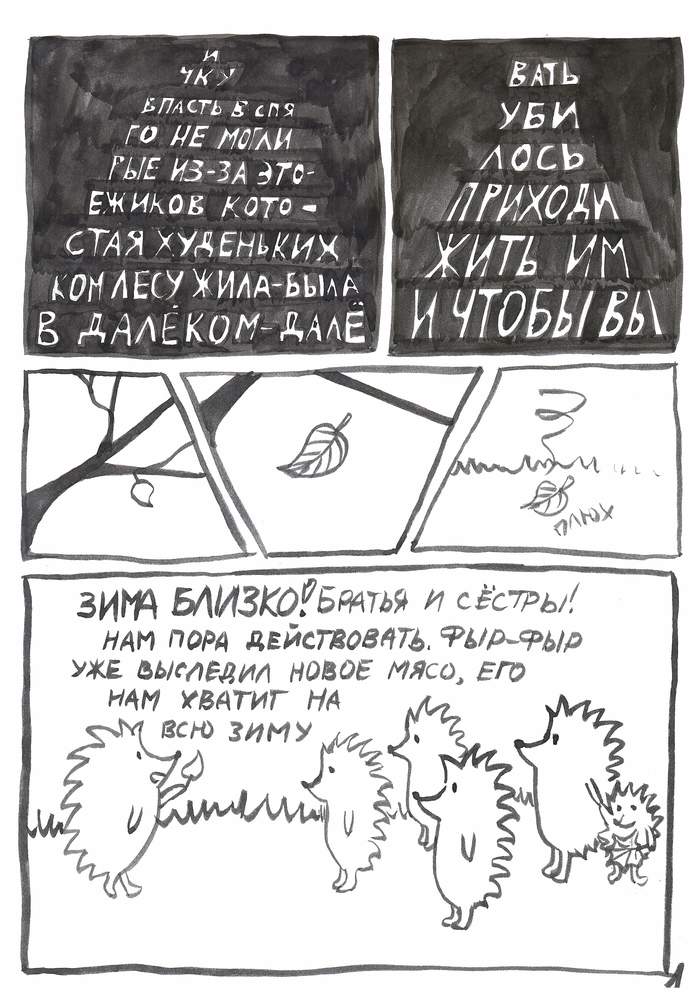 В ДАЛЁКОМ-ДАЛЁ
КОМ ЛЕСУ ЖИЛА-БЫЛА
СТАЯ ХУДЕНЬКИХ
ЕЖИКОВ КОТО-
РЫЕ ИЗ-ЗА ЭТО-
ГО НЕ МОГЛИ
ВПАСТЬ В СПЯ
ЧКУ
И
И ЧТОБЫ ВЫ
ЖИТЬ ИМ
ПРИХОДИ
ЛОСЬ
УБИ
ВАТЬ
ПЛЮХ
ЗИМА БЛИЗКО! БРАТЬЯ И СЁСТРЫ!
НАМ ПОРА ДЕЙСТВОВАТЬ. ФЫР-ФЫР
УЖЕ ВЫСЛЕДИЛ НОВОЕ МЯСО, ЕГО
НАМ ХВАТИТ НА
ВСЮ ЗИМУ
1